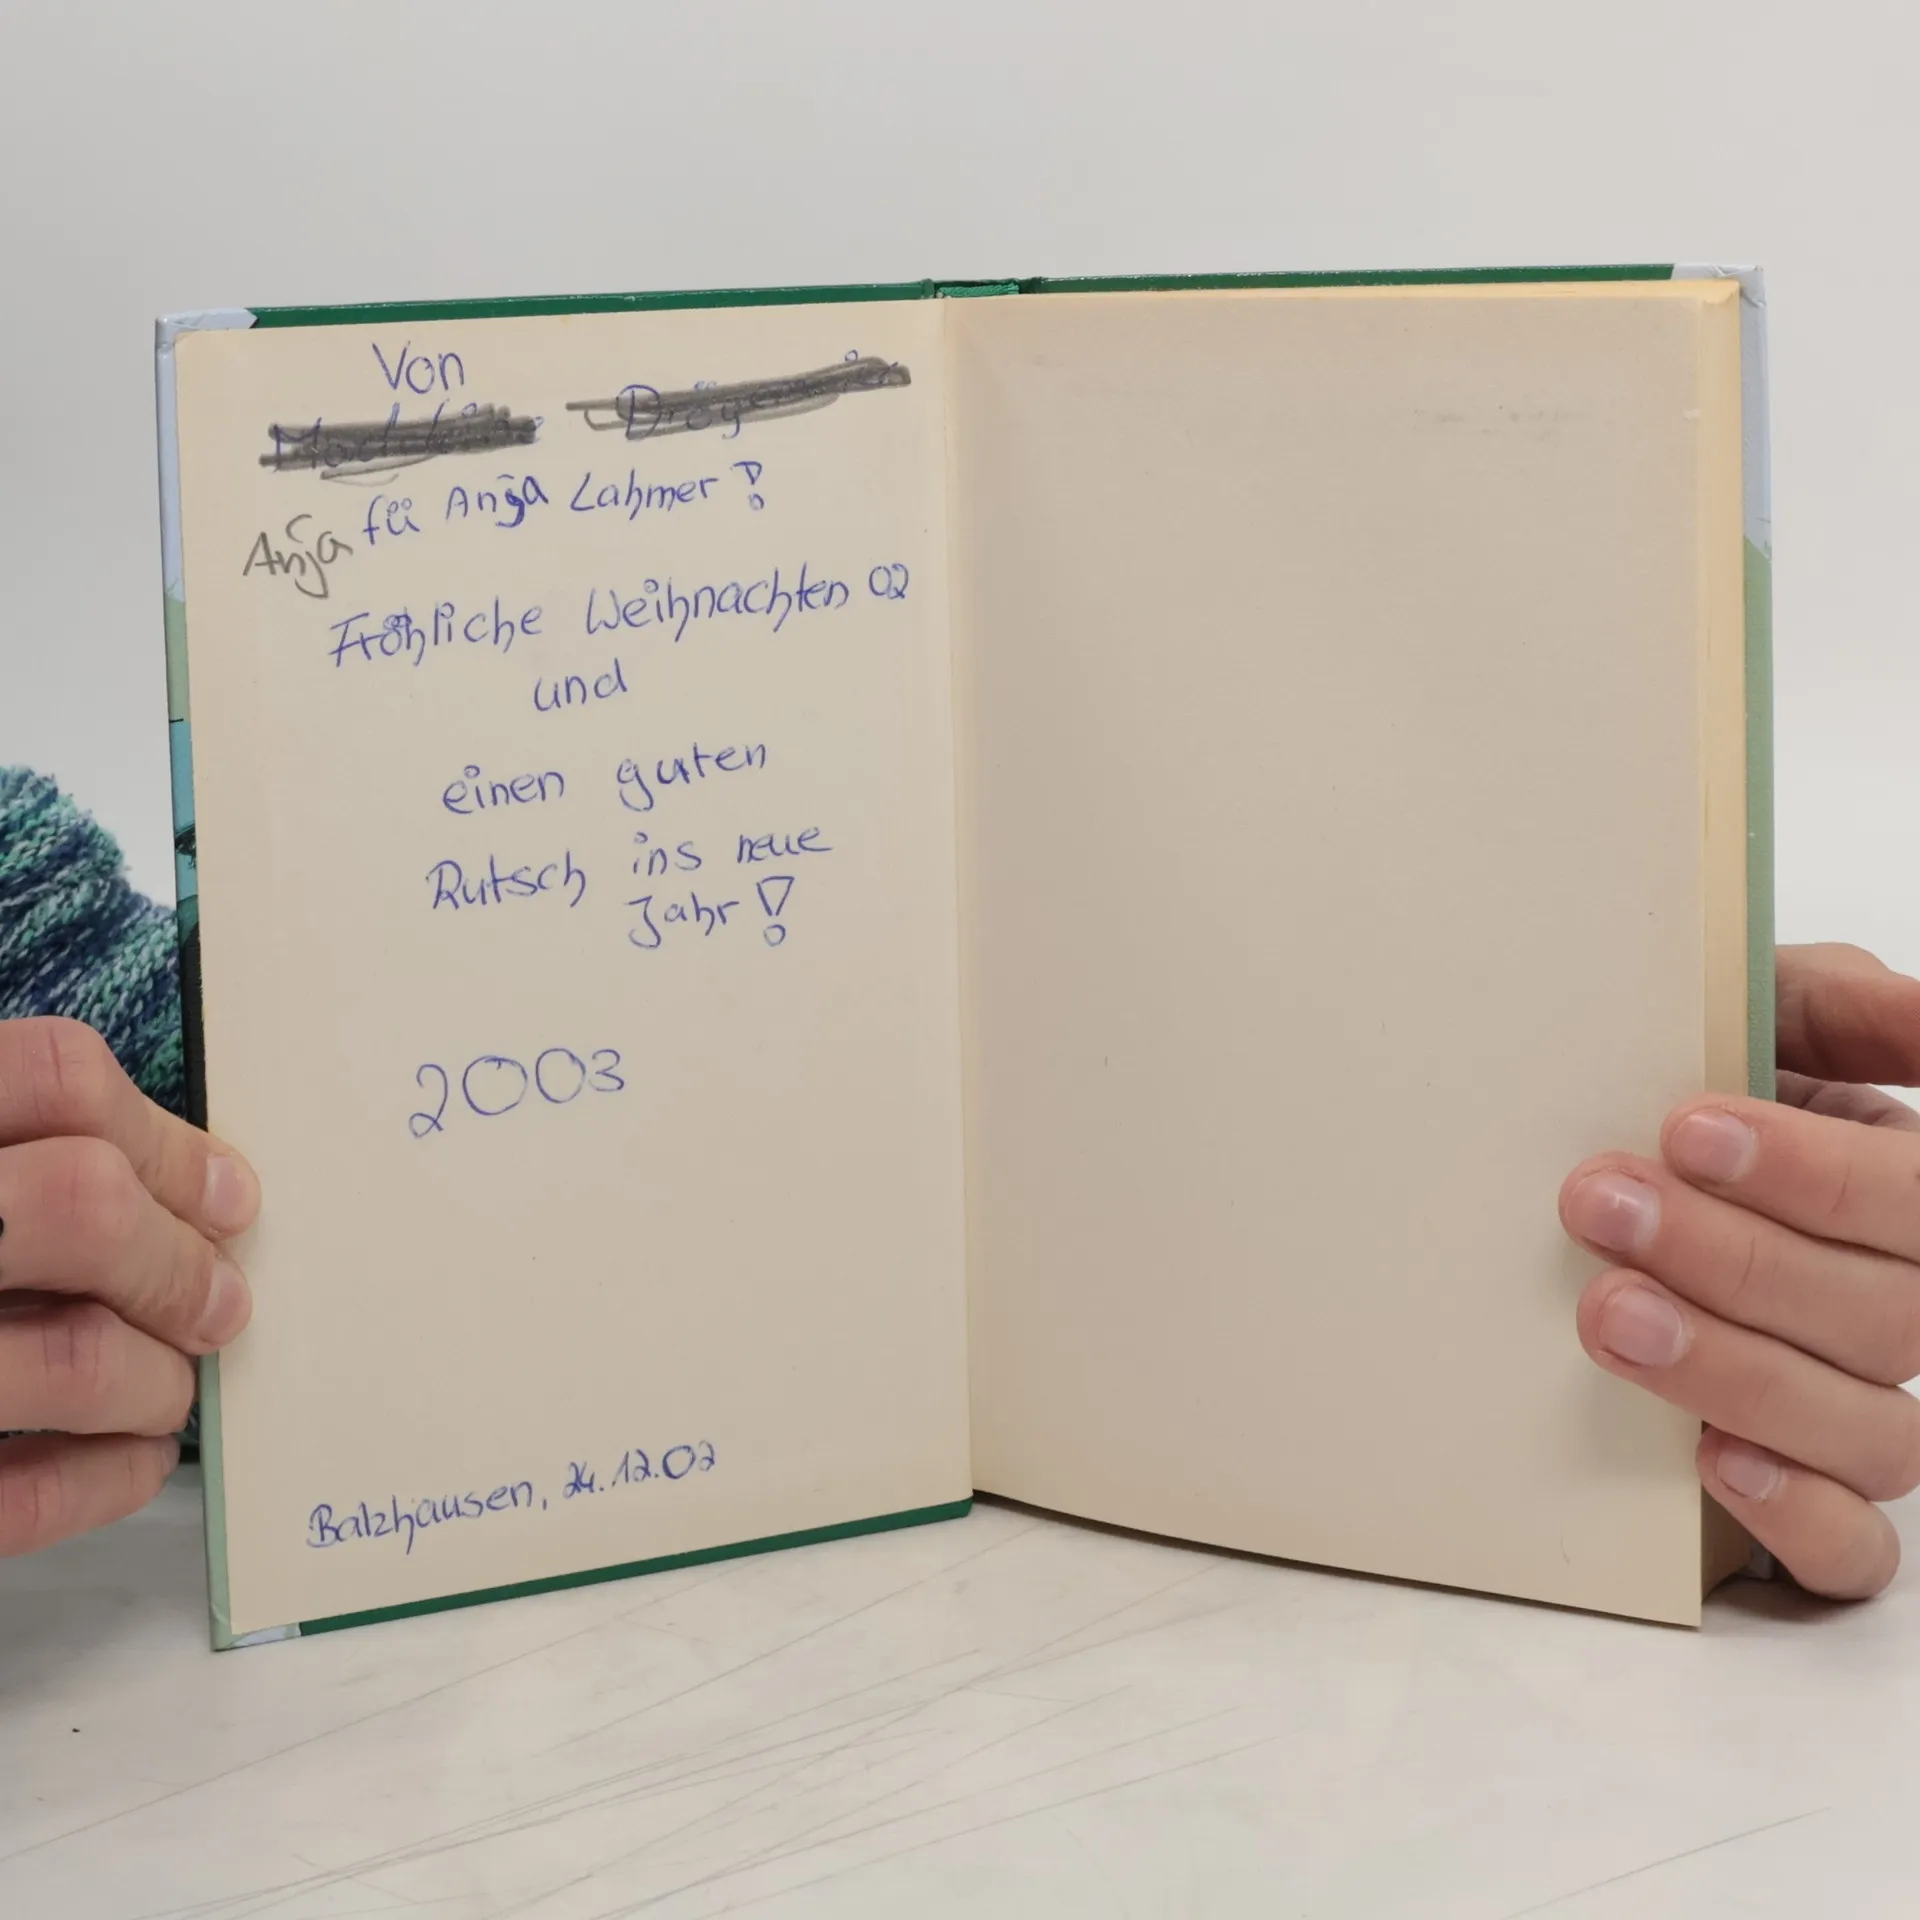 Von
für Anja Lahmer!
Anja
Fröhliche Weihnachten 02
und
einen guten
Rutsch ins neue
Jahr!
2003
Balzhausen, 24.12.02